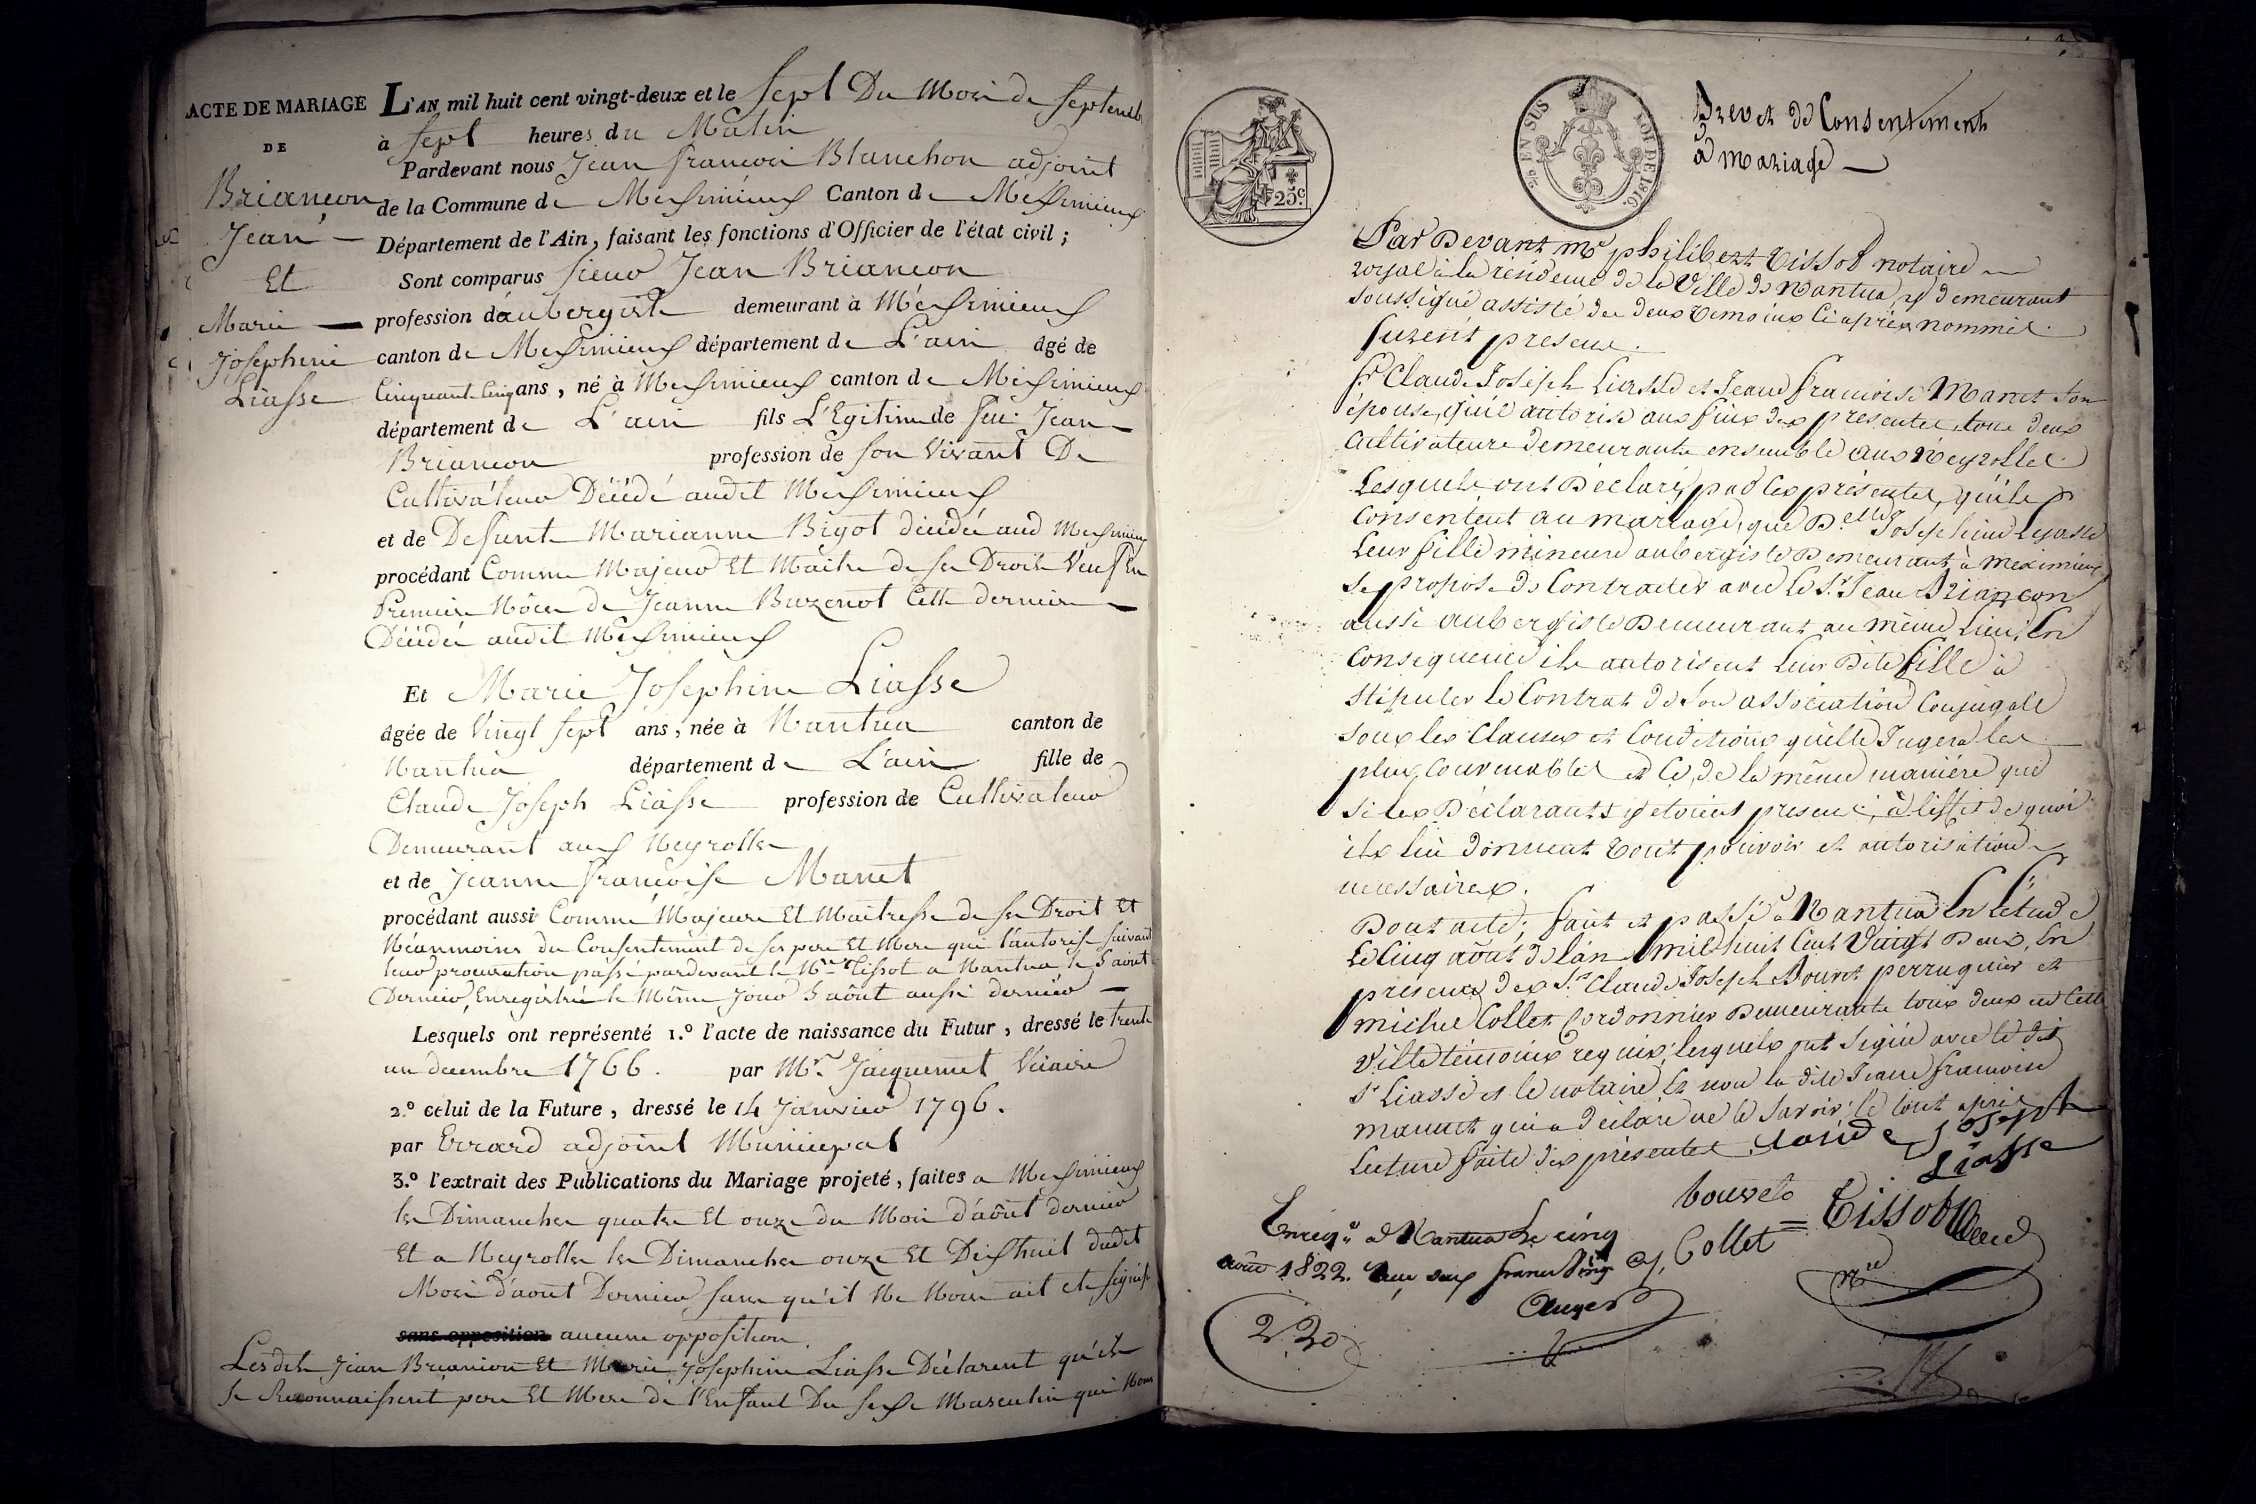 ACTE DE MARIAGE
DE
Briançon
Jean
Et
Marie
Josephine
Liasse
L'AN mil huit cent vingt-deux et le Sept Du Mois de Septembre
à Sept heures du Matin
Pardevant nous Jean françois Blanchon adjoint
de la Commune de Meximieux Canton de Meximieux
Département de l'Ain, faisant les fonctions d'Officier de l'état civil ;
Sont comparus Sieur Jean Briançon
profession d'aubergiste demeurant à Méximieux
canton de Meximieux département de L'ain âgé de
Cinquante Cinq ans, né à Meximieux canton de Meximieux
département de L'ain fils L'Egitime de feu Jean
Briançon profession de Son Vivant De
Cultivateur Décédé audit Meximieux
et de Defunte Marianne Bigot décédée aud Meximieux
procédant Comme Majeur Et Maitre de ses Droits Veuf En
Premiere Nôces de Jeanne Buzenot Cette derniere
Décédée audit Meximieux
Et Marie Josephine Liasse
âgée de Vingt Sept ans, née à Nantua canton de
Nantua département de L'ain fille de
Claude Joseph Liasse profession de Cultivateur
Demeurant aux Neyrolles
et de Jeanne françoise Manet
procédant aussi Comme Majeure Et Maitresse de ses Droit Et
Néanmoins du Consentement de ses pere Et Mere qui l'autorise Suivant
leur procuration passé pardevant le Nre Tissot a Nantua le 5 aout
Dernier, Enregistrée le Même Jour 5 aôut aussi dernier
Lesquels ont représenté 1.º l'acte de naissance du Futur, dressé le trente
un decembre 1766. par Mr. Jacquemet Vicaire
2.º celui de la Future, dressé le 14 Janvier 1796.
par Errard adjoint Municipal
3.º l'extrait des Publications du Mariage projeté, faites a Meximieux
les Dimanches quatre Et onze du Mois d'aôut dernier
Et a Neyrolles les Dimanches onze Et Dixhuit dudit
Mois d'aout Dernier sans qu'il Ne Nous ait ete signifié
sans opposition aucune opposition.
Lesdits Jean Briançon Et Marie Josephine Liasse Déclarent qu'ils
se Reconnaissent pere Et Mere de l'Enfant Du Sexe Masculin qui Nous
25 c
Brevet de Consentement
à mariage
Par Devant Me philibert Tissot notaire
royal à la résidence de la Ville de Nantua, y demeurant
soussigné assisté des deux temoins ci après nommés.
furent presens.
Sr Claude Joseph Liasse et Jeane françoise Manet son
épouse, qu'il autorise aux fins des presentes, tous deux
cultivateurs demeurants ensemble aux Neyrolles
Lesquels ont Déclaré, par les présentes, qu'ils
consentent au mariage, que Delle Josephine Liasse
leur fille mineure aubergiste Demeurant à Meximieux
se propose de Contracter avec le Sr Jean Briançon
aussi aubergiste Demeurant au même Lieu; En
consequence ils autorisent leur dite fille à
stipuler le Contrat de son association Conjugale
sous les Clauses et Conditions qu'elle Jugera les
plus convenables et ce, de la même manière que
si les Déclarants y etoient presens, à l'effet de quoi
ils lui donnent tout pouvoir et autorisation
necessaires.
Dont acte, fait et passé à Nantua En l'étude
Le Cinq août de l'an mil huit Cent Vingt Deux, En
présence des Srs Claude Joseph Bouvet perruquier et
michel Collet Cordonnier Demeurants tous deux en Cette
Ville témoins requis, lesquels ont signé avec le dit
Sr Liasse et le notaire, Et non la dite Jeane françoise
manet qui a déclaré ne le savoir; le tout après
Lecture faite des présentes. claude joseph
Liasse
bouvet
Tissot
Collet
Nre
Enregé à Nantua Le cinq
août 1822. Reçu deux francs vingt c.
Auger
2.20